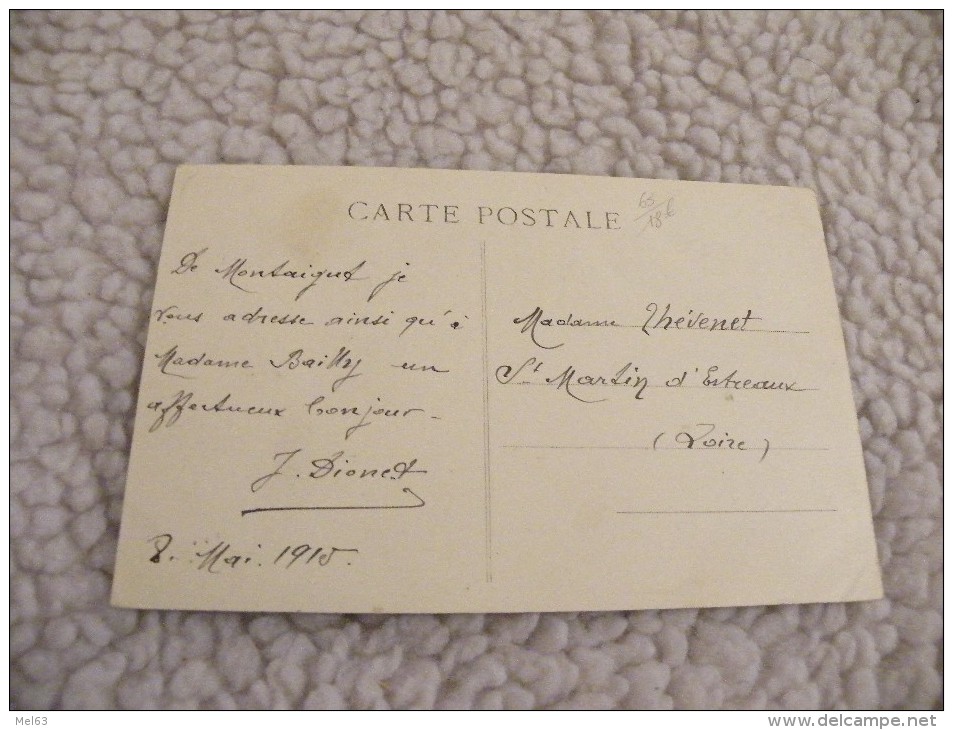 CARTE POSTALE
63
18€
De Montaigut je
vous adresse ainsi qu'à
Madame Bailly un
affectueux bonjour -
J. Dionet
8. Mai. 1915.
Madame Thévenet
St Martin d'Estreaux
(Loire)
Mel63
http://www.delcampe.net